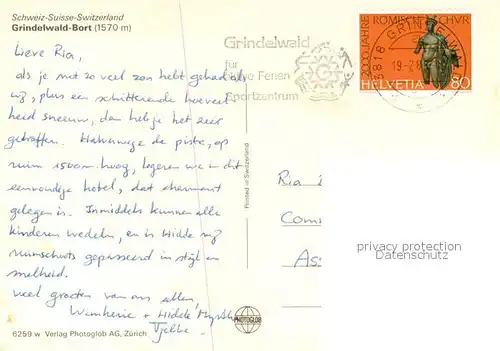 Schweiz-Suisse-Switzerland
Grindelwald-Bort (1570 m)
Lieve Ria,
als je met zo veel zon hebt gehad als
wij, plus een schitterende hoeveel
heid sneeuw, dan heb je het zeer
getroffen. Halverwege de piste, op
ruim 1500m hoog, logeren we in dit
eenvoudige hotel, dat charmant
gelegen is. Inmiddels kunnen alle
kinderen wedelen, en is Hidde mij
ruimschoots gepasseerd in stijl en
snelheid.
Veel groeten van ons allen,
+ Hidde
Tjelbe
6259.w Verlag Photoglob AG, Zürich
PHOTOGLOB
Printed in Switzerland
Grindelwald
für
Ferien
Sportzentrum
2000 JAHRE RÖMISCH CHUR
HELVETIA 80
3818 GRINDELWALD
Ria
Com
Ass
privacy protection
Datenschutz